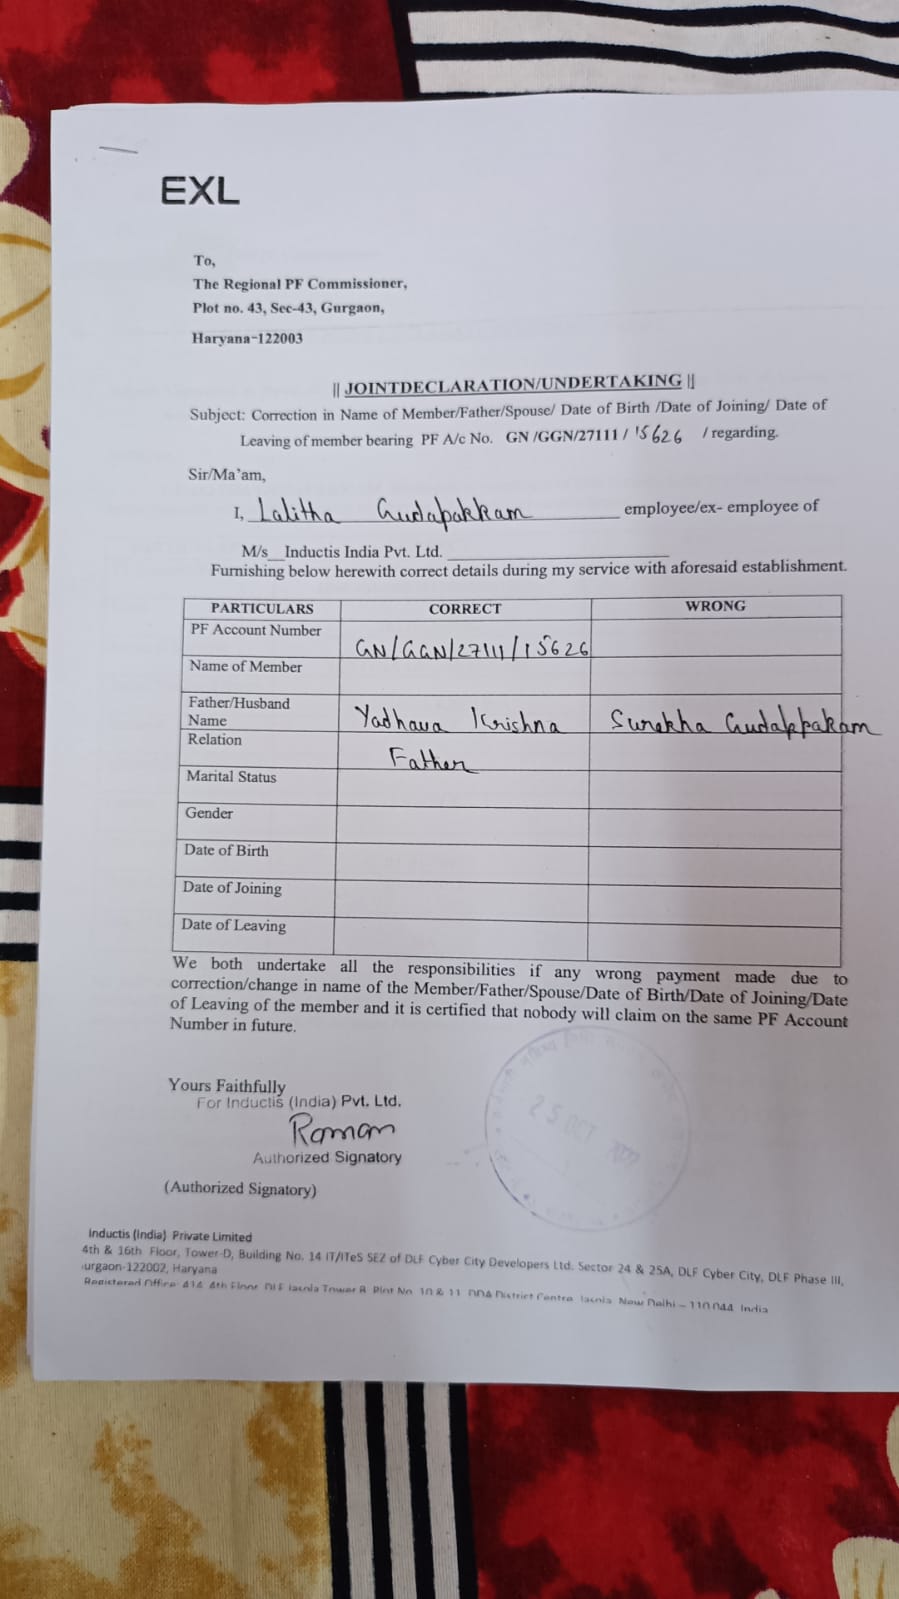 EXL
To,
The Regional PF Commissioner,
Plot no. 43, Sec-43, Gurgaon,
Haryana-122003
|| JOINTDECLARATION/UNDERTAKING ||
Subject: Correction in Name of Member/Father/Spouse/ Date of Birth /Date of Joining/ Date of
Leaving of member bearing PF A/c No. GN /GGN/27111 / 15626 / regarding.
Sir/Ma'am,
I, Lalitha Gudapakkam employee/ex- employee of
M/s__Inductis India Pvt. Ltd.
Furnishing below herewith correct details during my service with aforesaid establishment.
PARTICULARS CORRECT WRONG
PF Account Number GN/GGN/27111/15626
Name of Member
Father/Husband
Name Yadhava Krishna Surekha Gudappakam
Relation Father
Marital Status
Gender
Date of Birth
Date of Joining
Date of Leaving
We both undertake all the responsibilities if any wrong payment made due to
correction/change in name of the Member/Father/Spouse/Date of Birth/Date of Joining/Date
of Leaving of the member and it is certified that nobody will claim on the same PF Account
Number in future.
Yours Faithfully
For Inductis (India) Pvt. Ltd.
Raman
Authorized Signatory
25 OCT 2022
(Authorized Signatory)
Inductis (India) Private Limited
4th & 16th Floor, Tower-D, Building No. 14 IT/ITeS SEZ of DLF Cyber City Developers Ltd. Sector 24 & 25A, DLF Cyber City, DLF Phase III,
urgaon-122002, Haryana
Registered Office: 414, 4th Floor, DLF Jasola Tower B, Plot No. 10 & 11, DDA District Centre, Jasola, New Delhi – 110 044, India